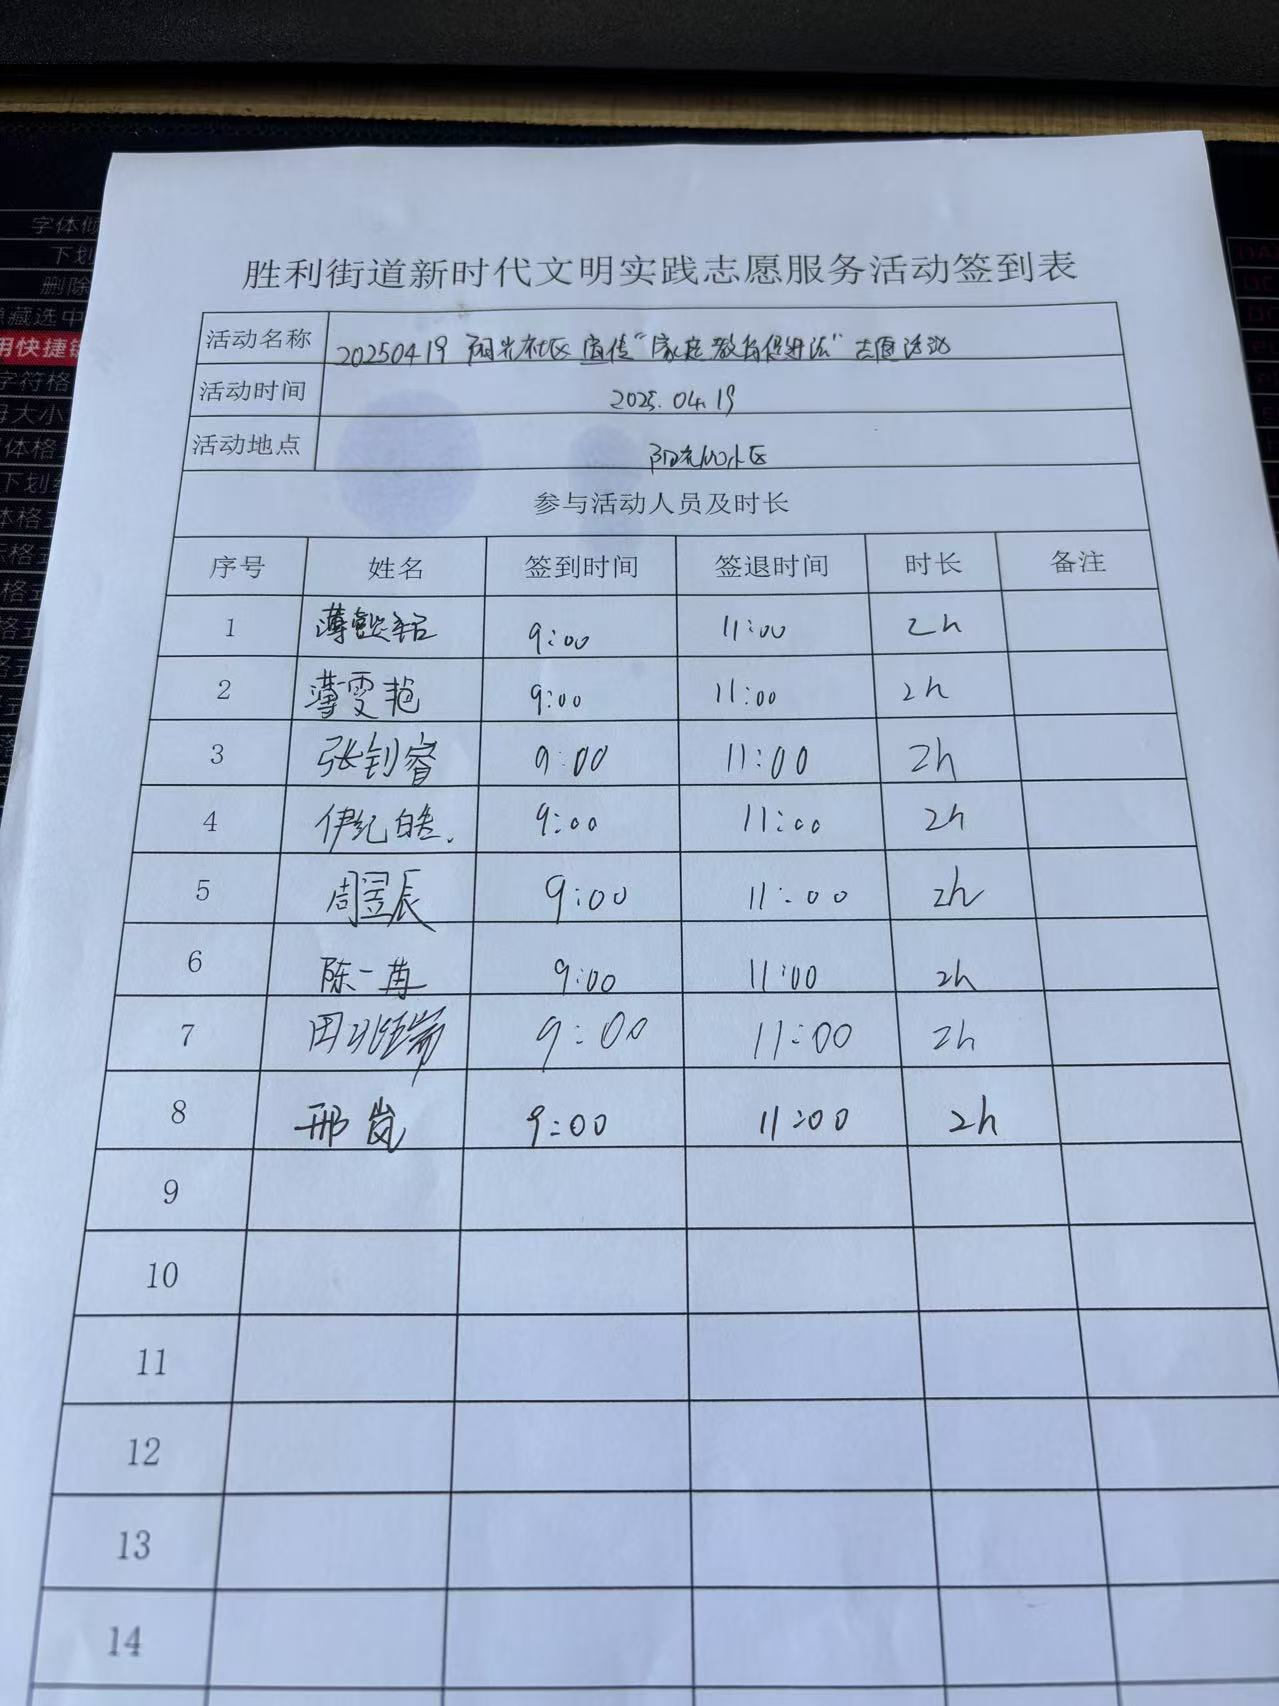 字体倾
下划
删除
隐藏选中
用快捷键
字符格
母大小
胜利街道新时代文明实践志愿服务活动签到表
活动名称 20250419 阳光社区宣传“家庭教育促进法”志愿活动
活动时间 2025.04.19
活动地点 阳光100小区
参与活动人员及时长
序号 姓名 签到时间 签退时间 时长 备注
1 薄懿铭 9:00 11:00 2h
2 薄雯艳 9:00 11:00 2h
3 张钊睿 9:00 11:00 2h
4 伊纪皓. 9:00 11:00 2h
5 周昱辰 9:00 11:00 2h
6 陈一苒 9:00 11:00 2h
7 田 9:00 11:00 2h
8 邢岚 9:00 11:00 2h
9
10
11
12
13
14